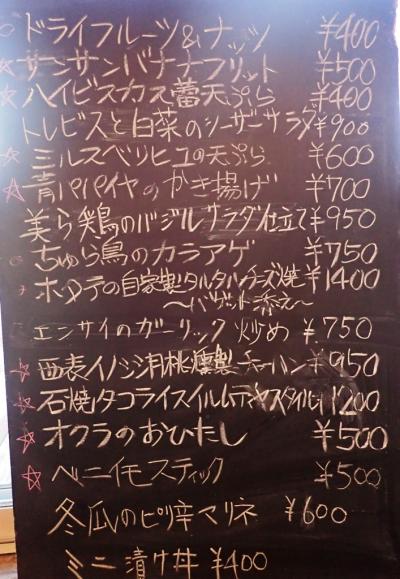 ドライフルーツ&ナッツ ¥400
☆サンサンバナナフリット ¥500
☆ハイビスカス蕾天ぷら ¥400
トレビスと白菜のシーザーサラダ ¥900
☆ミルスベリヒユの天ぷら ¥600
☆青パパイヤのかき揚げ ¥700
美ら鶏のバジルサラダ仕立て ¥950
ちゅら鳥のカラアゲ ¥750
ホタテの自家製タルタルチーズ焼 ¥1400
〜バゲット添え〜
エンサイのガーリック炒め ¥750
☆西表イノシシ月桃燻製チャーハン ¥950
☆石焼タコライスイルムティヤスタイル 1200
☆オクラのおひたし ¥500
☆ベニイモスティック ¥500
冬瓜のピリ辛マリネ ¥600
ミニ漬け丼 ¥400